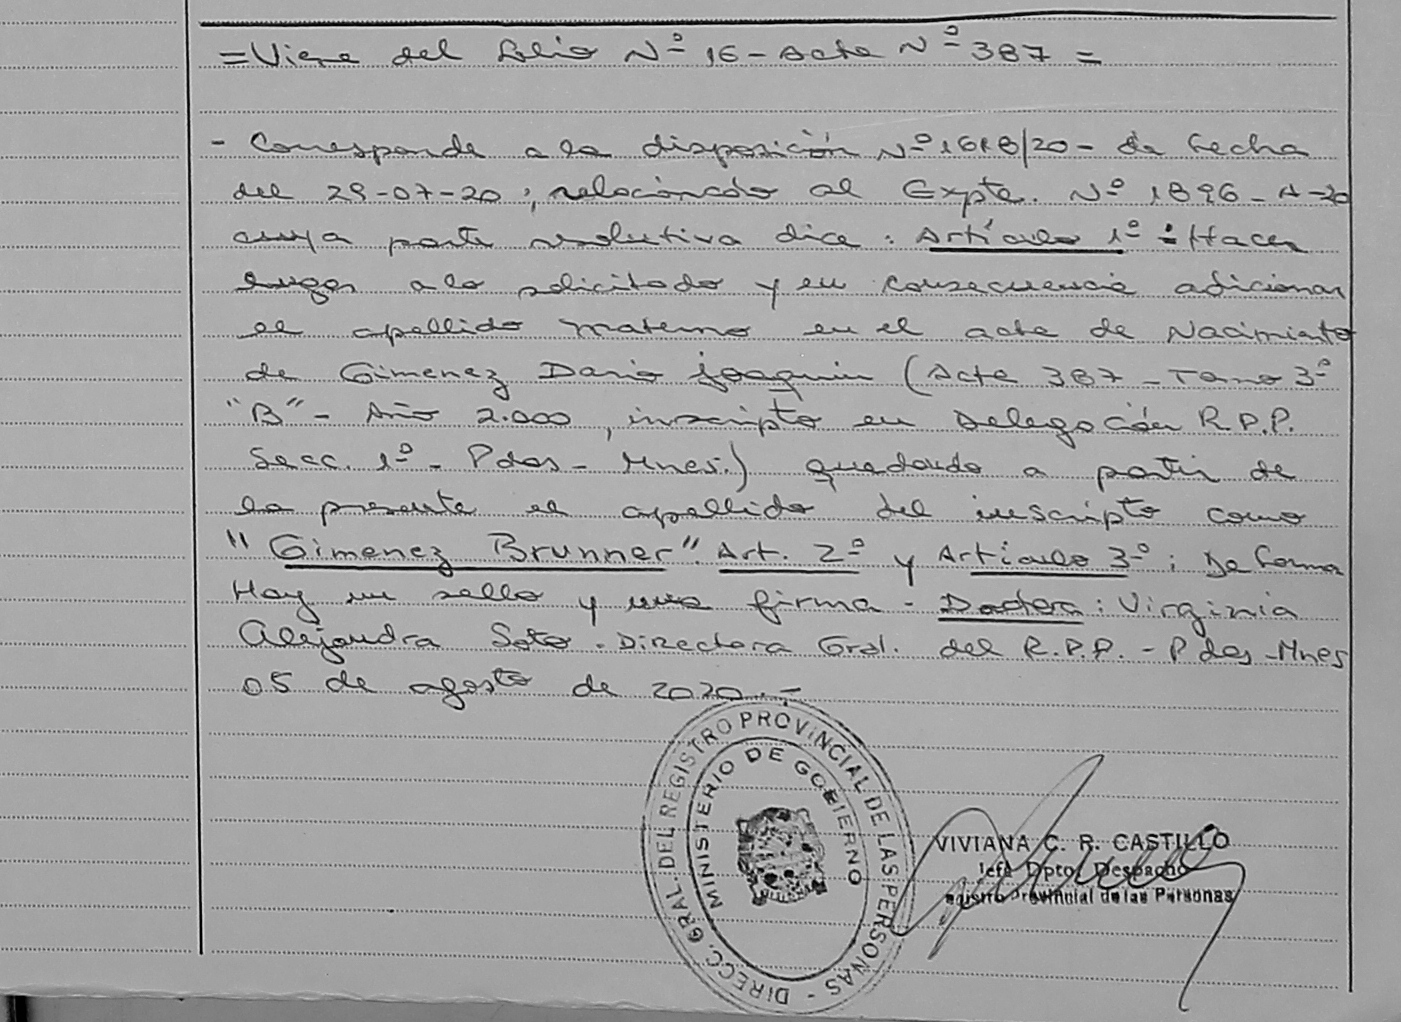 =Viene del Folio Nº 16-Acta Nº 387 =
- Corresponde a la disposición Nº 1618/20- de fecha
del 29-07-20, relacionado al Expte. Nº 1896-A-20
cuya parte resolutiva dice: Artículo 1º: Hacer
lugar a lo solicitado y en consecuencia adicionar
el apellido materno en el acta de Nacimiento
de Gimenez Dario Joaquin (Acta 387-Tomo 3º
"B"- Año 2.000, inscripto en Delegación R.P.P.
Secc. 1º- Pdas- Mnes.) quedando a partir de
la presente el apellido del inscripto como
"Gimenez Brunner". Art. 2º y Artículo 3º; De forma
Hay un sello y una firma - Doctora: Virginia
Alejandra Soto. Directora Gral. del R.P.P.- Pdas-Mnes
05 de agosto de 2020.-
DIRECC. GRAL. DEL REGISTRO PROVINCIAL DE LAS PERSONAS -
MINISTERIO DE GOBIERNO
VIVIANA C. R. CASTILLO
Jefa Dpto. Despacho
Registro Provincial de las Personas